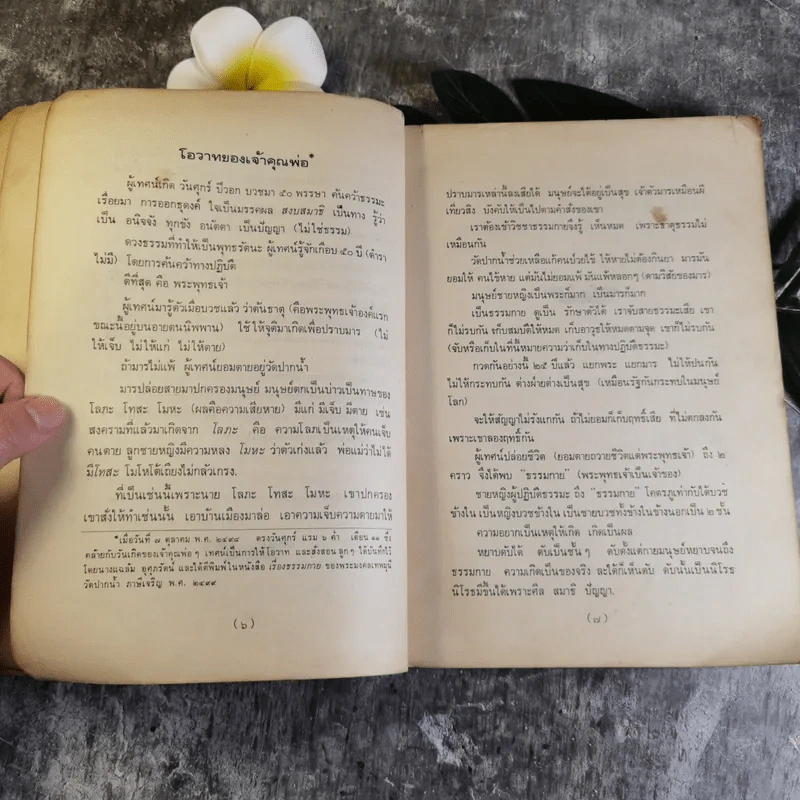 โอวาทของเจ้าคุณพ่อ*
ผู้เทศน์เกิด วันศุกร์ ปีวอก บวชมา ๕๐ พรรษา ค้นคว้าธรรมะ
เรื่อยมา การออกธุดงค์ ใจเป็นมรรคผล สงบสมาธิ เป็นทาง รู้ว่า
เป็น อนิจจัง ทุกขัง อนตตา เป็นปัญญา (ไม่ใช่ธรรม)
ดวงธรรมที่ทำให้เป็นพุทธรัตนะ ผู้เทศน์รู้จักเกือบ ๕๐ ปี (ตำรา
ไม่มี) โดยการค้นคว้าทางปฏิบัติ
ดีที่สุด คือ พระพุทธเจ้า
ผู้เทศน์มารู้ตัวเมื่อบวชแล้ว ว่าต้นธาตุ (คือพระพุทธเจ้าองค์แรก
ขณะนี้อยู่บนอายตนนิพพาน) ใช้ให้จุติมาเกิดเพื่อปราบมาร (ไม่
ให้เจ็บ ไม่ให้แก่ ไม่ให้ตาย)
ถ้ามารไม่แพ้ ผู้เทศน์ยอมตายอยู่วัดปากน้ำ
มารปล่อยสายมาปกครองมนุษย์ มนุษย์ตกเป็นบ่าวเป็นทาษของ
โลภะ โทสะ โมหะ (ผลคือความเสียหาย) มีแก่ มีเจ็บ มีตาย เช่น
สงครามที่แล้วมาเกิดจาก โลภะ คือ ความโลภเป็นเหตุให้คนเจ็บ
คนตาย ลูกชายหญิงมีความหลง โมหะ ว่าตัวเก่งแล้ว พ่อแม่ว่าไม่ได้
มีโทสะ โมโหโต้เถียงไม่กลัวเกรง.
ที่เป็นเช่นนี้เพราะนาย โลภะ โทสะ โมหะ เขาปกครอง
เขาสั่งให้ทำเช่นนั้น เอาบ้านเมืองมาล่อ เอาความเจ็บความตายมาให้
*เมื่อวันที่ ๗ ตุลาคม พ.ศ. ๒๔๙๘ ตรงวันศุกร์ แรม ๖ ค่ำ เดือน ๑๑ ซึ่ง
คล้ายกับวันเกิดของเจ้าคุณพ่อ ๆ เทศน์เป็นการให้โอวาท และสั่งสอนลูก ๆ ได้บันทึกไว้
โดยนางแฉล้ม อุศุภรัตน์ และได้ตีพิมพ์ในหนังสือ เรื่องธรรมกาย ของพระมงคลเทพมุนี
วัดปากน้ำ ภาษีเจริญ พ.ศ. ๒๔๙๙
(๖)
ปราบมารเหล่านี้ลงเสียได้ มนุษย์จะได้อยู่เป็นสุข เจ้าตัวมารเหมือนผี
เที่ยวสิง บังคับให้เป็นไปตามคำสั่งของเขา
เราต้องเข้าวิชชาธรรมกายจึงรู้ เห็นหมด เพราะธาตุธรรมไม่
เหมือนกัน
วัดปากน้ำช่วยเหลือแก้คนป่วยไข้ ให้หายไม่ต้องกินยา มารมัน
ยอมให้ คนไข้หาย แต่มันไม่ยอมแพ้ มันแพ้หลอกๆ (ตามวิสัยของมาร)
มนุษย์ชายหญิงเป็นพระก็มาก เป็นมารก็มาก
เป็นธรรมกาย ดูเป็น รักษาตัวได้ เราจับสายธรรมะเสีย เขา
ก็ไม่รบกัน เก็บสมบัติให้หมด เก็บอาวุธให้หมดตามจุด เขาก็ไม่รบกัน
(จับหรือเก็บในที่นี้หมายความว่าเก็บในทางปฏิบัติธรรมะ)
กวดกันอย่างนี้ ๒๕ ปีแล้ว แยกพระ แยกมาร ไม่ให้ปนกัน
ไม่ให้กระทบกัน ต่างฝ่ายต่างเป็นสุข (เหมือนรัฐกันกระทบในมนุษย์
โลก)
จะให้สัญญาไม่รังแกกัน ถ้าไม่ยอมก็เก็บฤทธิ์เสีย ที่ไม่ตกลงกัน
เพราะเขาลองฤทธิ์กัน
ผู้เทศน์ปล่อยชีวิต (ยอมตายถวายชีวิตแด่พระพุทธเจ้า) ถึง ๒
คราว จึงได้พบ “ธรรมกาย” (พระพุทธเจ้าเป็นเจ้าของ)
ชายหญิงผู้ปฏิบัติธรรมะ ถึง “ธรรมกาย” โคตรภูเท่ากับได้บวช
ข้างใน เป็นหญิงบวชข้างใน เป็นชายบวชทั้งข้างในข้างนอกเป็น ๒ ชั้น
ความอยากเป็นเหตุให้เกิด เกิดเป็นผล
หยาบดับได้ ดับเป็นชั้นๆ ดับตั้งแต่กายมนุษย์หยาบจนถึง
ธรรมกาย ความเกิดเป็นของจริง ละได้ก็เห็นดับ ดับนั้นเป็นนิโรธ
นิโรธมีขึ้นได้เพราะศีล สมาธิ ปัญญา.
(๗)